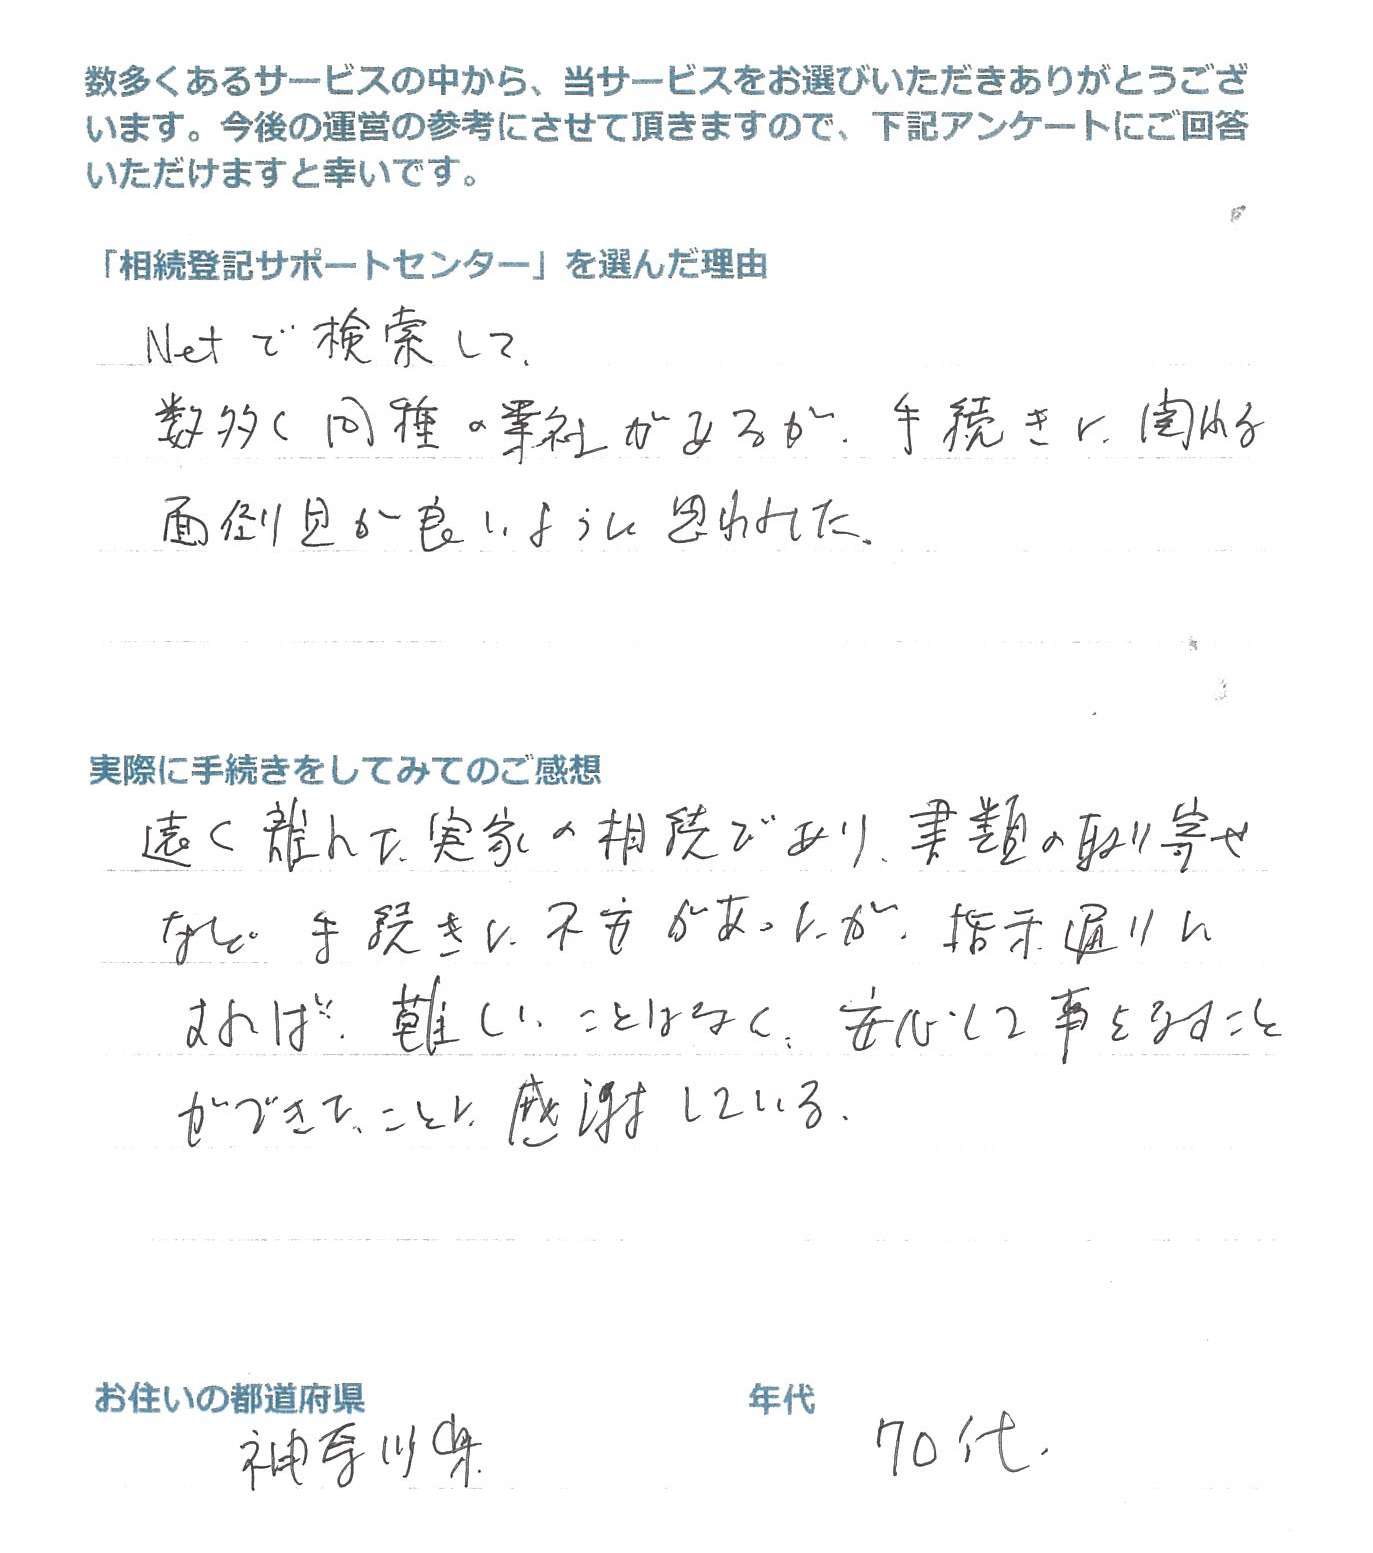 数多くあるサービスの中から、当サービスをお選びいただきありがとうござ
います。今後の運営の参考にさせて頂きますので、下記アンケートにご回答
いただけますと幸いです。
「相続登記サポートセンター」を選んだ理由
Netで検索して、
数多く同種の業社があるが、手続きに関わる
面倒見が良いように思われました。
実際に手続きをしてみてのご感想
遠く離れた実家の相続であり、書類の取り寄せ
など。手続きに不安があったが、指示通りに
すれば、難しいことはなく、安心して事をなすこと
ができたことに感謝している。
お住いの都道府県
年代
神奈川県
70代.